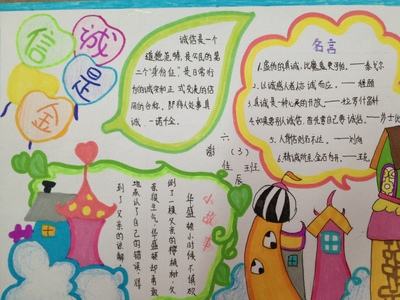 诚信
是
金
诚信是一个
道德范畴，是公民的第
二个“身份证”，是日常行
为的诚实和正式交流的信
用的合称。即待人处事真
诚、一诺千金。
名言
1.虚伪的真诚，比魔鬼更可怕。——泰戈尔
2.以诚感人者，人亦诚而应。——程颐
3.真诚是一种心灵的开放。——拉罗什富科
4.如果要别人诚信，首先要自己要诚信。——莎士比
5.人背信则名不达。——刘向
6.精诚所至，金石为开。——王充
六（3）班
谢佳辰
小故事
华盛顿小时候，不慎砍
倒了一棵父亲的樱桃树，父
亲很生气，华盛顿却勇敢
地承认了自己的错误，得
到了父亲的谅解